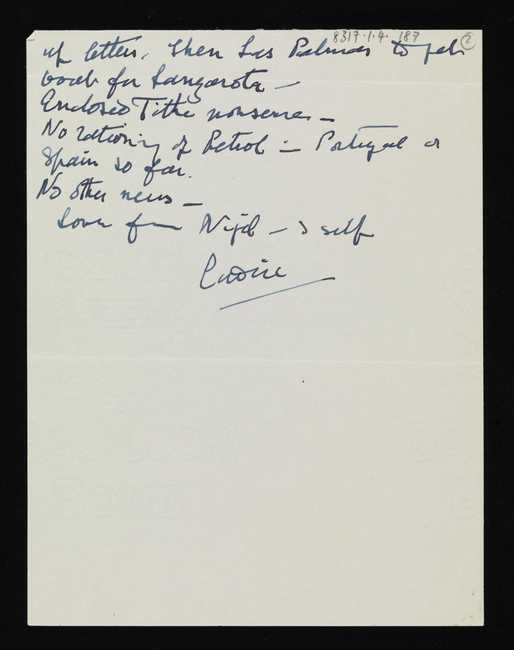 8317.1.4.187 2
up letters, then Las Palmas to
boat for Lanzarota —
Enclosed Tithe nonsense —
No rationing of Petrol in Portugal or
Spain so far.
No other news —
Love from Nigel — & self